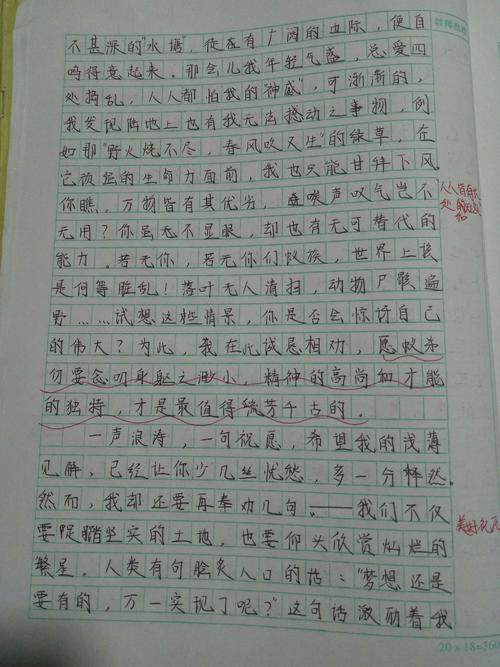 不甚深的"水塘,徒有有广阔的边际,便自
鸣得意起来。那会儿我年轻气盛,总爱四
处捣乱,人人都怕我的"神威",可渐渐的,
我发现陆地上也有我无法撼动之事物,例
如那"野火烧不尽,春风吹又生"的绿草,在
它顽强的生命力面前,我也只能甘拜下风。
你瞧,万物皆有其优劣,唉声叹气岂不
无用?你虽无不显眼,却也有无可替代的
能力。若无你,若无你们蚁族,世界上该
是何等脏乱!落叶无人清扫,动物尸骸遍
野……试想这些情景,你是否会惊讶自己
的伟大?为此,我在此诚恳相劝,愿蚁弟
勿要念叨身躯之渺小,精神的高尚和才能
的独特,才是最值得流芳千古的。
一声浪涛,一句祝愿,希望我的浅薄
见解,已经让你少几丝忧愁,多一分释然。
然而,我却还要再奉劝几句。——我们不仅
要脚踏坚实的土地,也要仰头欣赏灿烂的
繁星。人类有句脍炙人口的话:"梦想还是
要有的,万一实现了呢?"这句话激励着我
人人皆有
处
和
美好祝愿
20×18=360